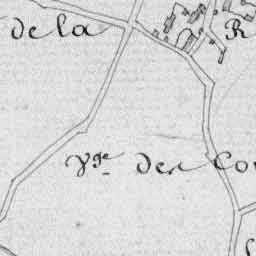 de la
R
Vge des Co